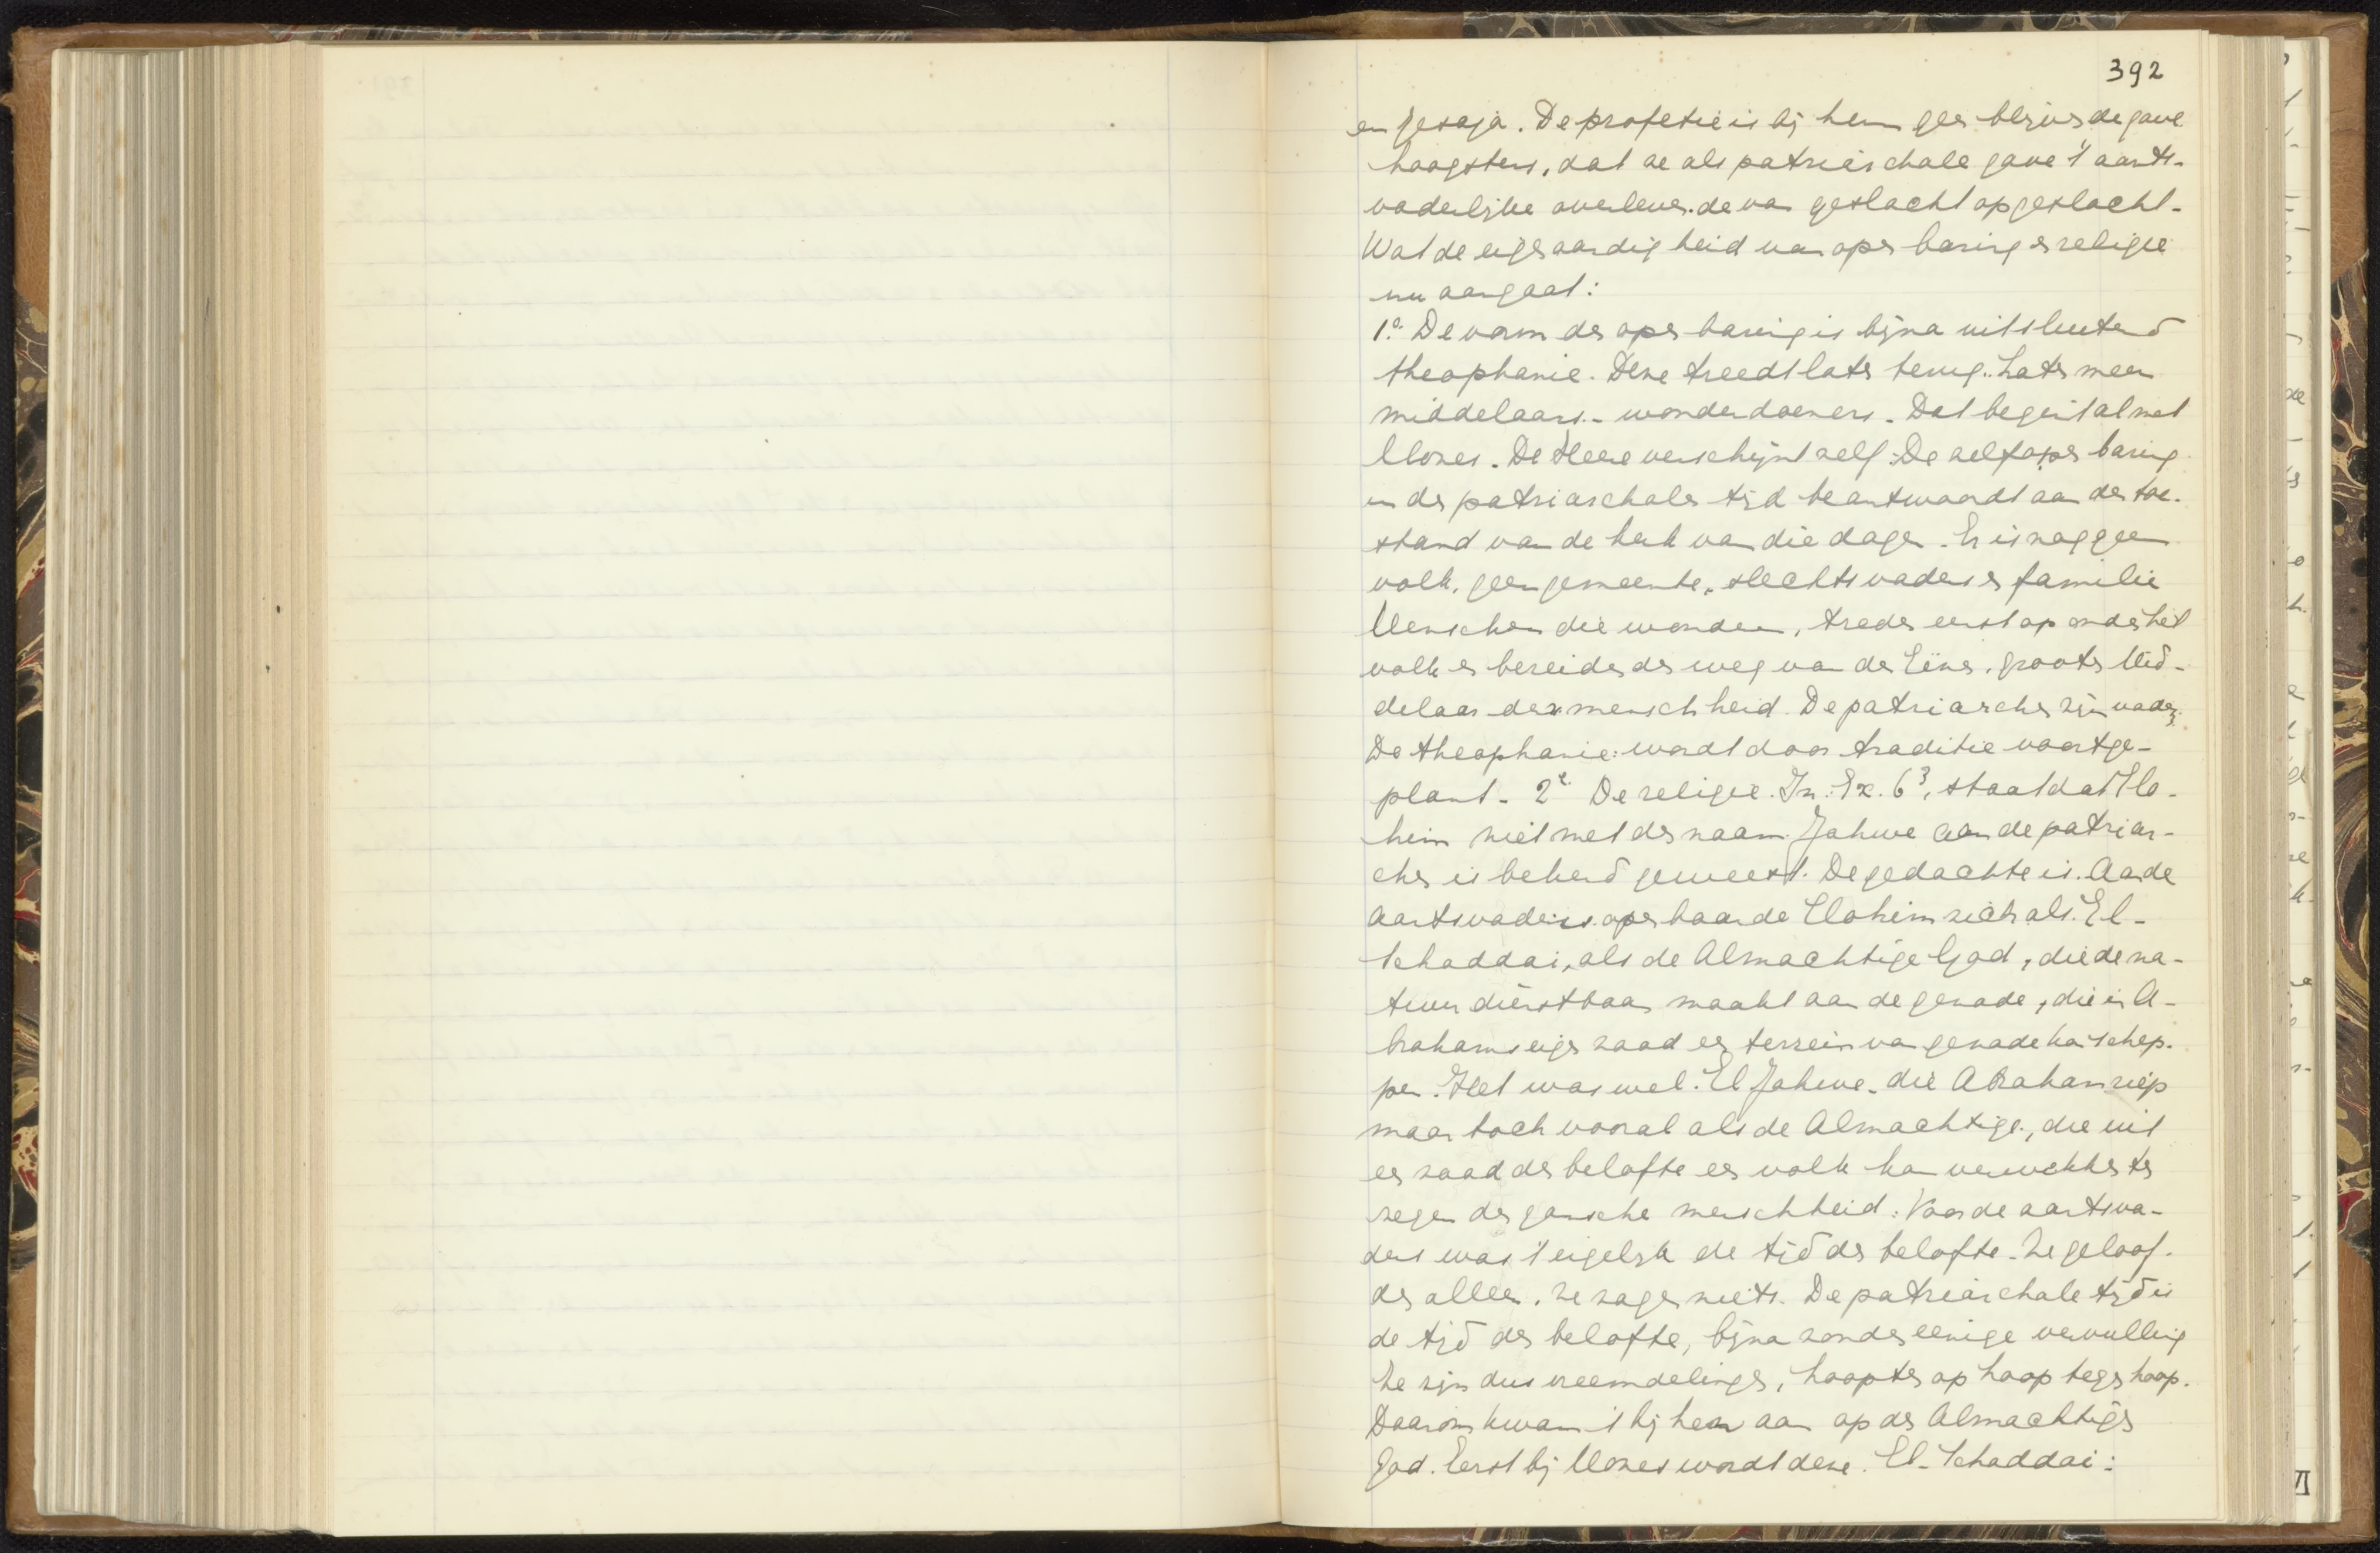 392
en Jesaja. De profetie is bij hem geen blijvende gave
hoogstens, dat ze als patriarchale gave 't aarts-
vaderlijke overleverde van geslacht op geslacht.
Wat de eigenaardigheid van openbaring en religie
nu aangaat:
1º. De vorm der openbaring is bijna uitsluitend
theophanie. Deze treedt later terug. Later meer
middelaars - wonderdoeners. Dat begint al met
Mozes. De Heere verschijnt zelf. De zelfopenbaring
in den patriarchalen tijd beantwoordt aan den toe-
stand van de kerk van die dagen. Er is nog geen
volk, geen gemeente, slechts vaders en familie
Menschen die wonderen, treden eerst op onder het
volk en bereiden den weg van den Eénen, grooten Mid-
delaar der menschheid. De patriarchen zijn vaders.
De theophanie wordt door traditie voortge-
plant. 2e De religie. In Ex. 6³, staat dat Elo-
him niet met den naam Jahwe aan de patriar-
chen is bekend geweest. De gedachte is. Aan de
aartsvaders openbaarde Elohim zich als El-
Schaddai, als de Almachtige God, die de na-
tuur dienstbaar maakt aan de genade, die in A-
brahams eigen zaad een terrein van genade kan schep-
pen. Het was wel El Jahwe die Abraham riep
maar toch vooral als de Almachtige, die uit
een zaad der belofte een volk kan verwekken ten
zegen der gansche menschheid. Voor de aartsva-
ders was 't eigelijk de tijd der belofte. Ze geloof-
den alleen, ze zagen niets. De patriarchale tijd is
de tijd der belofte, bijna zonder eenige vervulling
Ze zijn dus vreemdelingen, hoopten op hoop tegen hoop.
Daarom kwam 't bij hen aan op den Almachtigen
God. Eerst bij Mozes wordt deze El-Schaddai: